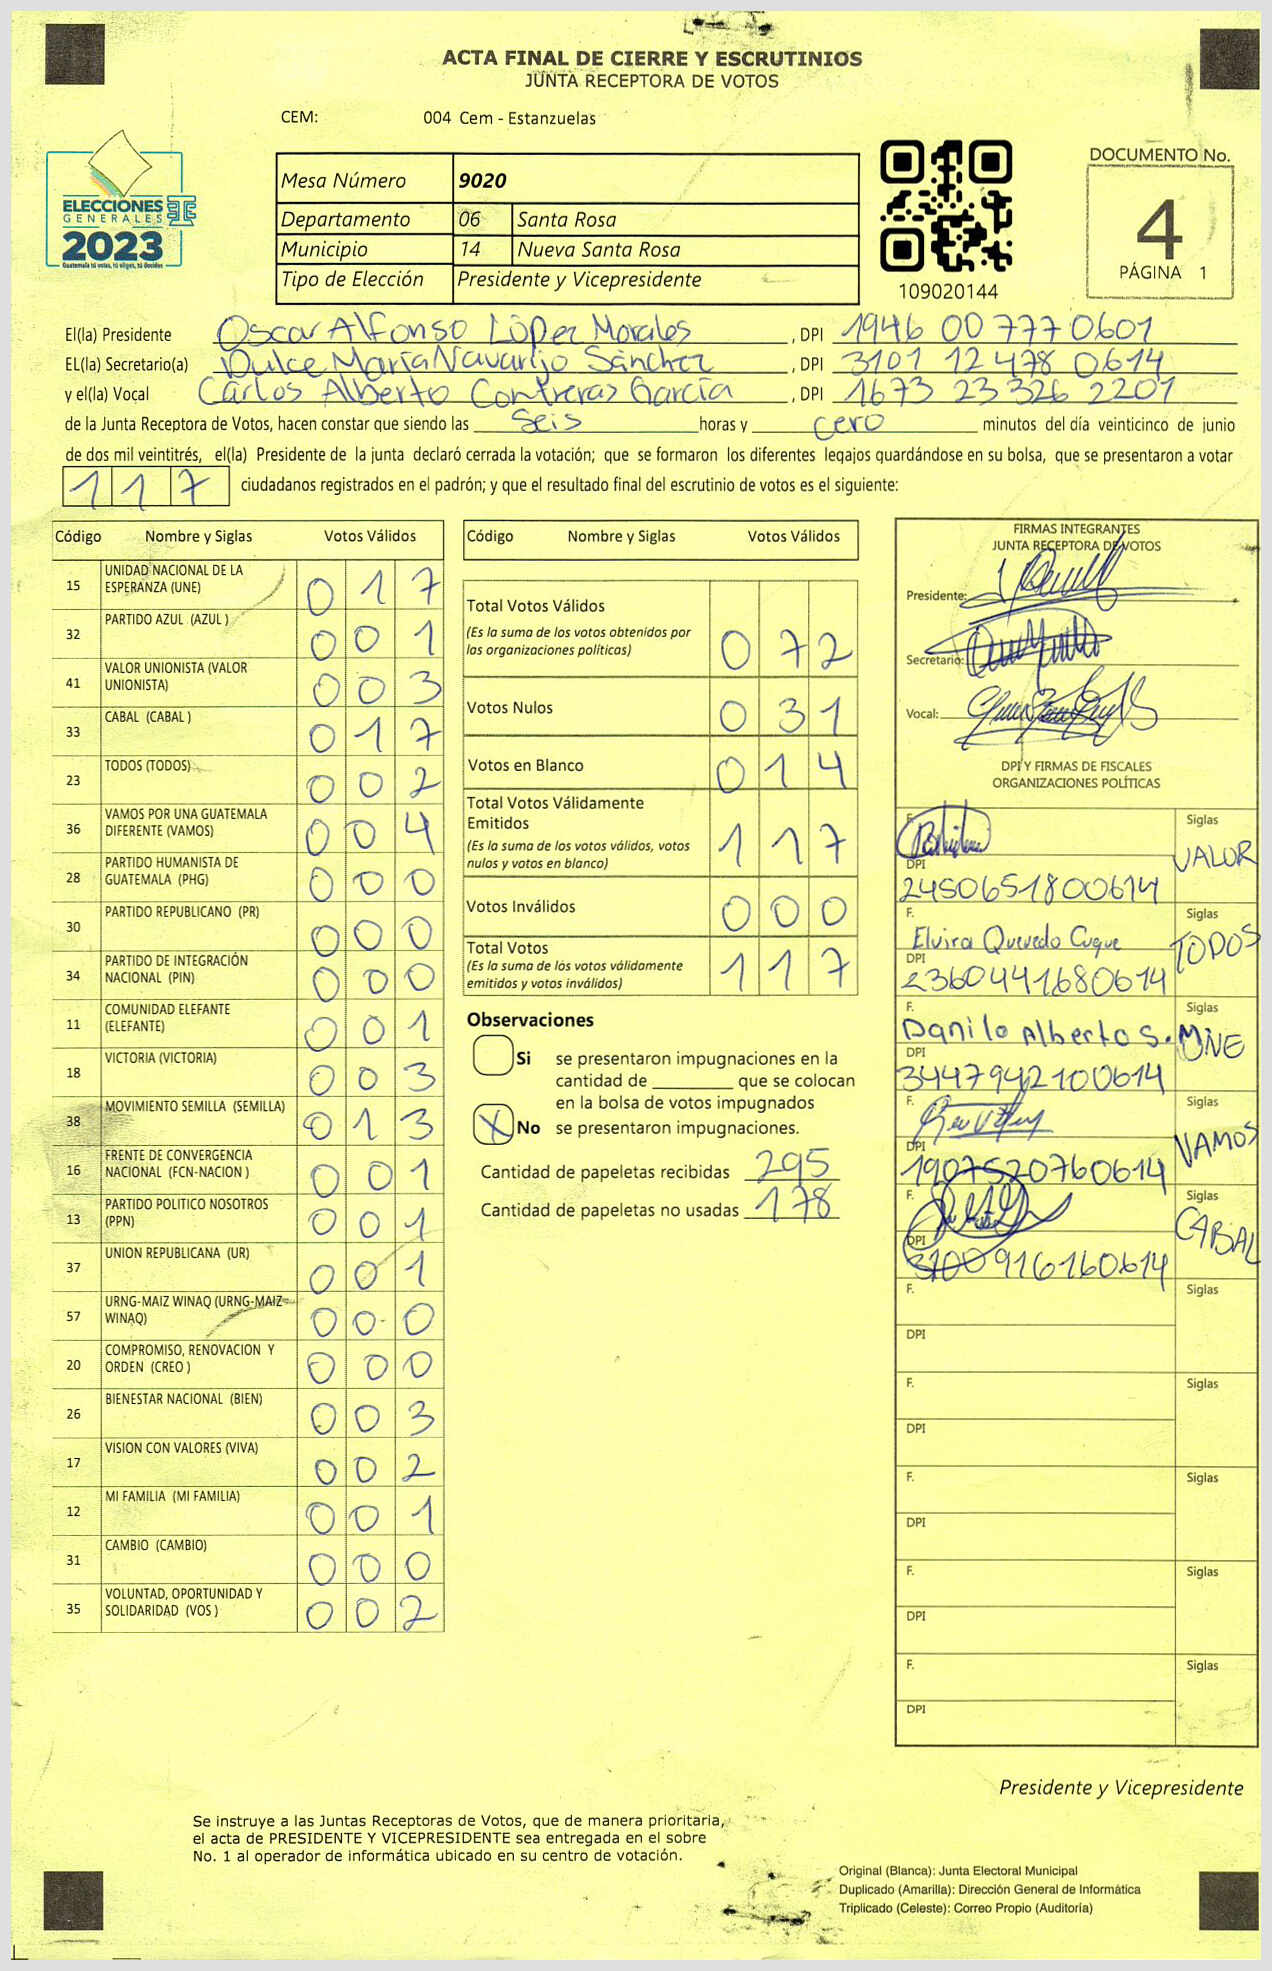 ACTA FINAL DE CIERRE Y ESCRUTINIOS
JUNTA RECEPTORA DE VOTOS
CEM: 004 Cem - Estanzuelas
ELECCIONES
GENERALES
2023
Guatemala tú votas, tú eliges, tú decides
Mesa Número 9020
Departamento 06 Santa Rosa
Municipio 14 Nueva Santa Rosa
Tipo de Elección Presidente y Vicepresidente
109020144
DOCUMENTO No.
4
PÁGINA 1
El(la) Presidente Oscar Alfonso López Morales , DPI 1946 00777 0601
EL(la) Secretario(a) Dulce María Navarijo Sánchez , DPI 3101 12478 0614
y el(la) Vocal Carlos Alberto Contreras García , DPI 1673 23326 2201
de la Junta Receptora de Votos, hacen constar que siendo las seis horas y cero minutos del día veinticinco de junio
de dos mil veintitrés, el(la) Presidente de la junta declaró cerrada la votación; que se formaron los diferentes legajos guardándose en su bolsa, que se presentaron a votar
117 ciudadanos registrados en el padrón; y que el resultado final del escrutinio de votos es el siguiente:
Código Nombre y Siglas Votos Válidos
15 UNIDAD NACIONAL DE LA ESPERANZA (UNE) 017
32 PARTIDO AZUL (AZUL ) 001
41 VALOR UNIONISTA (VALOR UNIONISTA) 003
33 CABAL (CABAL ) 017
23 TODOS (TODOS) 002
36 VAMOS POR UNA GUATEMALA DIFERENTE (VAMOS) 004
28 PARTIDO HUMANISTA DE GUATEMALA (PHG) 000
30 PARTIDO REPUBLICANO (PR) 000
34 PARTIDO DE INTEGRACIÓN NACIONAL (PIN) 000
11 COMUNIDAD ELEFANTE (ELEFANTE) 001
18 VICTORIA (VICTORIA) 003
38 MOVIMIENTO SEMILLA (SEMILLA) 013
16 FRENTE DE CONVERGENCIA NACIONAL (FCN-NACION ) 001
13 PARTIDO POLITICO NOSOTROS (PPN) 001
37 UNION REPUBLICANA (UR) 001
57 URNG-MAIZ WINAQ (URNG-MAIZ WINAQ) 000
20 COMPROMISO, RENOVACION Y ORDEN (CREO ) 000
26 BIENESTAR NACIONAL (BIEN) 003
17 VISION CON VALORES (VIVA) 002
12 MI FAMILIA (MI FAMILIA) 001
31 CAMBIO (CAMBIO) 000
35 VOLUNTAD, OPORTUNIDAD Y SOLIDARIDAD (VOS ) 002
Código Nombre y Siglas Votos Válidos
Total Votos Válidos 072
(Es la suma de los votos obtenidos por
las organizaciones políticas)
Votos Nulos 031
Votos en Blanco 014
Total Votos Válidamente
Emitidos 117
(Es la suma de los votos válidos, votos
nulos y votos en blanco)
Votos Inválidos 000
Total Votos 117
(Es la suma de los votos válidamente
emitidos y votos inválidos)
Observaciones
Si se presentaron impugnaciones en la
cantidad de ________ que se colocan
en la bolsa de votos impugnados
X No se presentaron impugnaciones.
Cantidad de papeletas recibidas 295
Cantidad de papeletas no usadas 178
FIRMAS INTEGRANTES
JUNTA RECEPTORA DE VOTOS
Presidente:
Secretario:
Vocal:
DPI Y FIRMAS DE FISCALES
ORGANIZACIONES POLÍTICAS
F. Siglas VALOR
DPI 2450651800614
F. Elvira Quevedo Cuque Siglas TODOS
DPI 2360441680614
F. Danilo Alberto S.M Siglas UNE
DPI 3447942100614
F. Siglas VAMOS
DPI 1907520760614
F. Siglas CABAL
DPI 3100916160614
F. Siglas
DPI
F. Siglas
DPI
F. Siglas
DPI
F. Siglas
DPI
F. Siglas
DPI
Presidente y Vicepresidente
Se instruye a las Juntas Receptoras de Votos, que de manera prioritaria,
el acta de PRESIDENTE Y VICEPRESIDENTE sea entregada en el sobre
No. 1 al operador de informática ubicado en su centro de votación.
Original (Blanca): Junta Electoral Municipal
Duplicado (Amarilla): Dirección General de Informática
Triplicado (Celeste): Correo Propio (Auditoría)